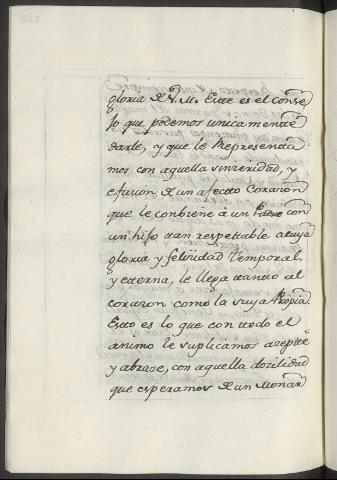 gloria de V. M. Este es el conse
jo que podemos unicamente
darle, y que le Representa
mos con aquella sinzeridad, y
efusion de un afecto corazon
que le conbiene à un Padre con
un hijo tan respettable, a cuya
gloria y felizidad temporal,
y etterna, le llega tanto al
corazon como la suya Propia
Esto es lo que con todo el
animo le suplicamos azepte
y abraze, con aquella dozilidad
que esperamos de un Monar